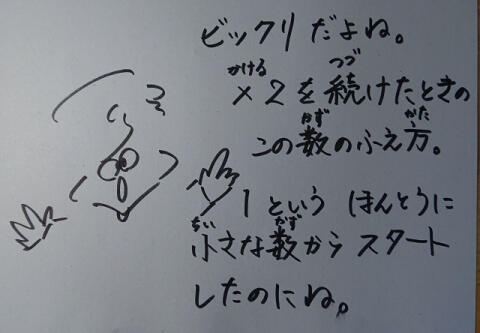 ビックリだよね。
かける つづ
×2を続けたときの
かず かた
この数のふえ方。
1というほんとうに
ちい かず
小さな数からスタート
したのにね。